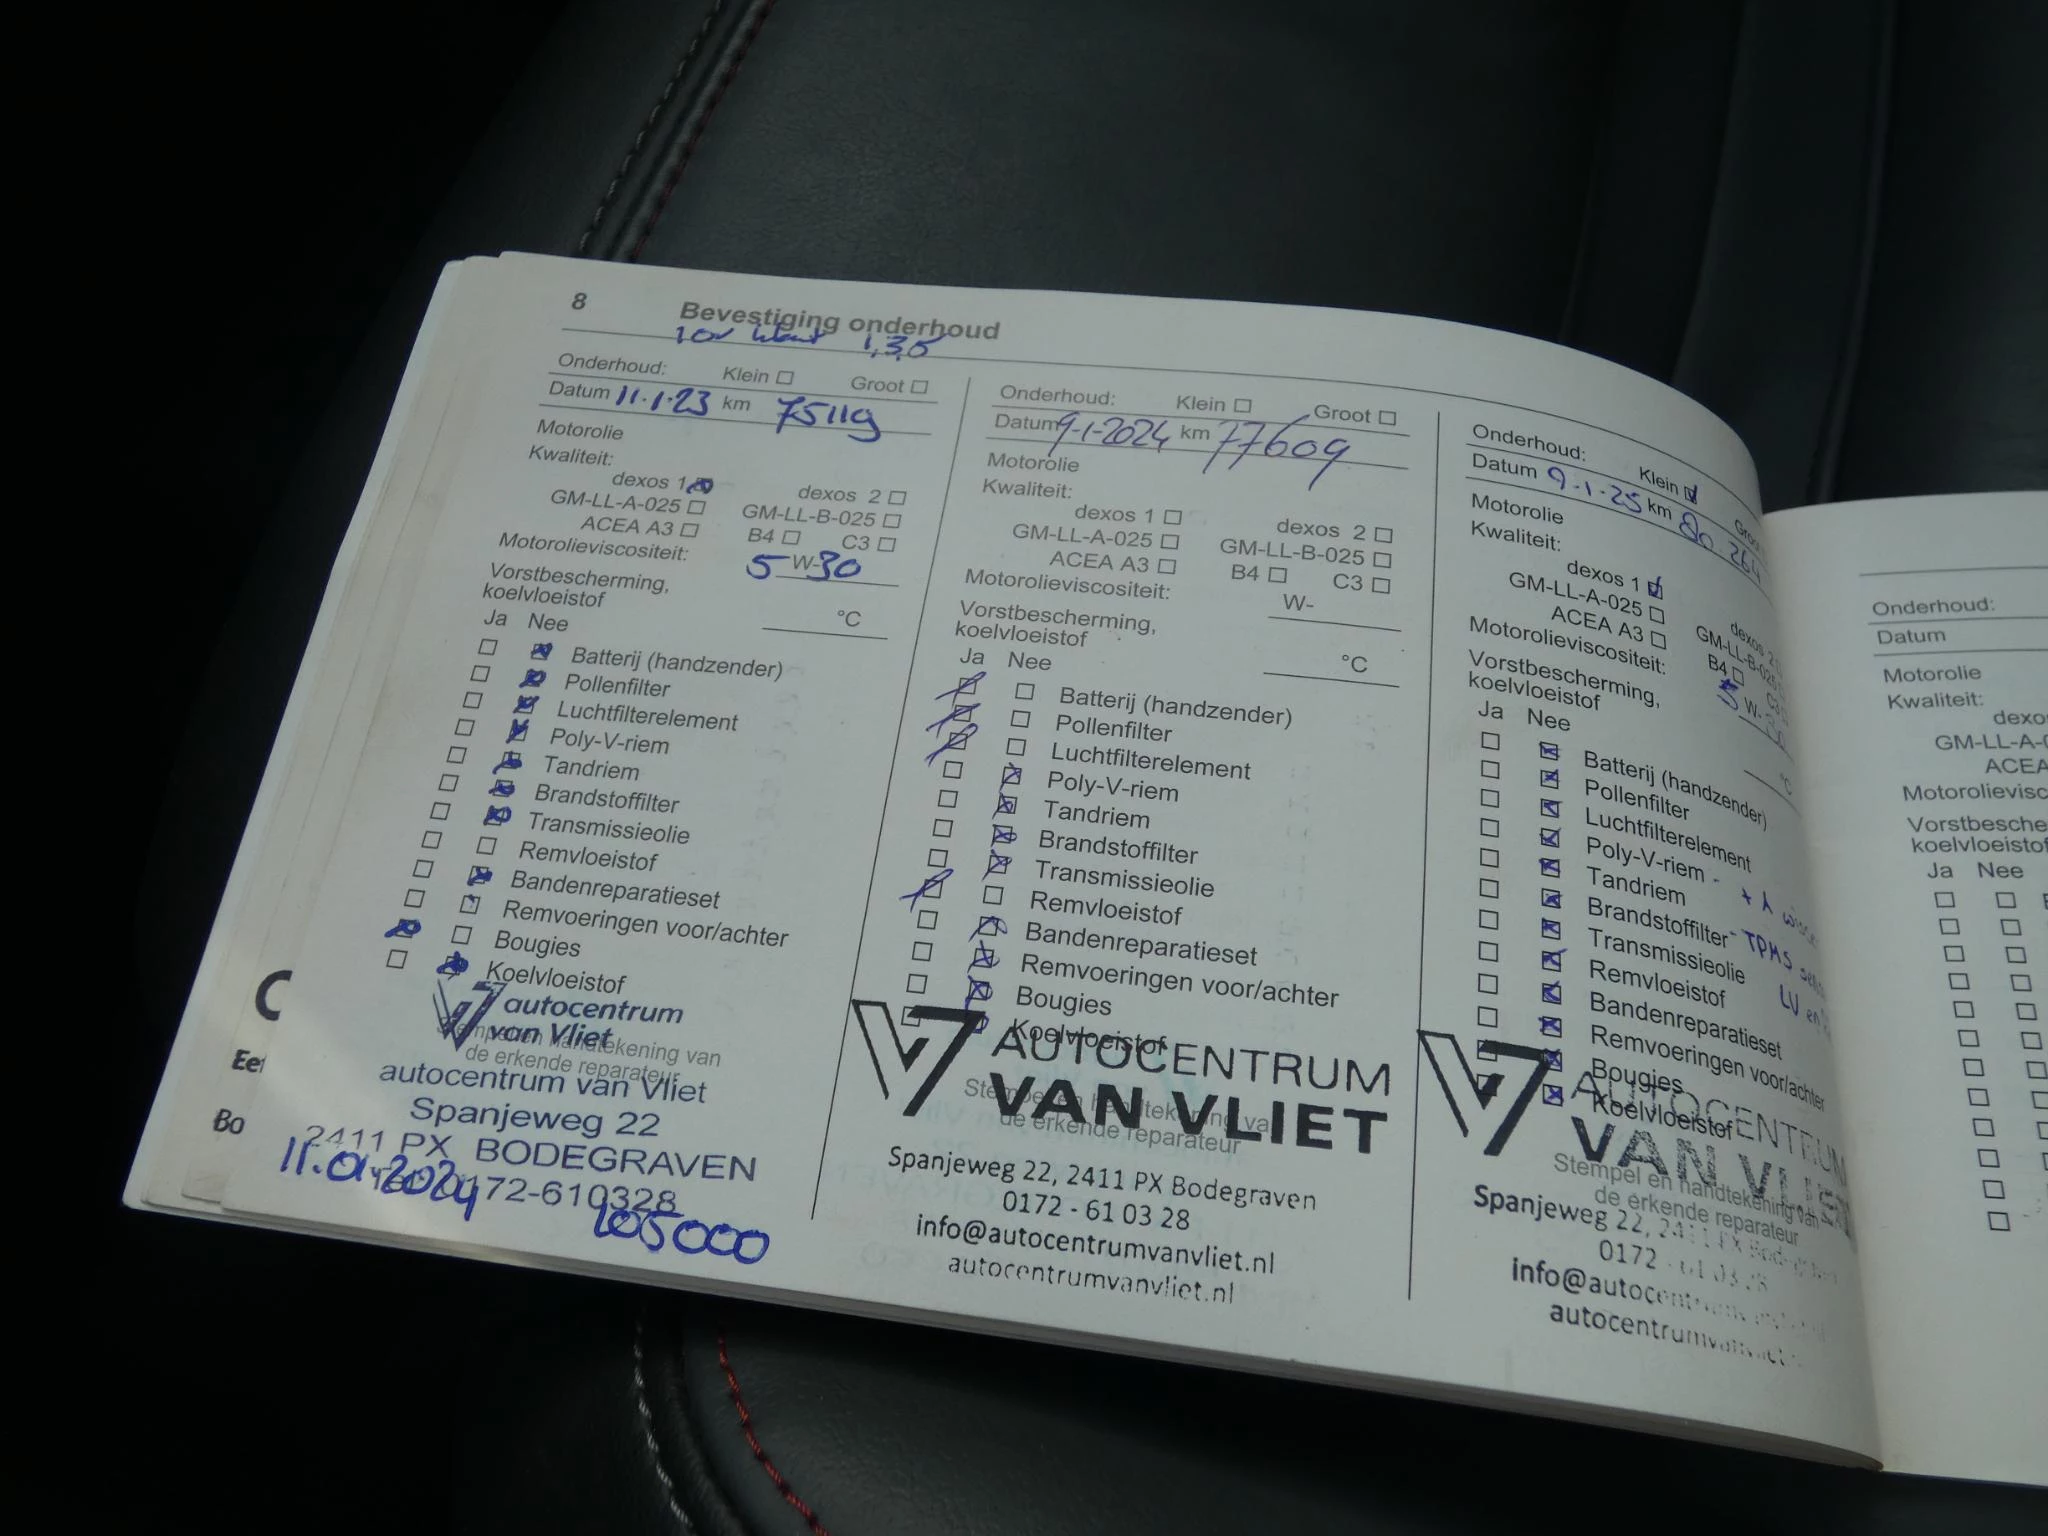 8 Bevestiging onderhoud
1,3,5
Onderhoud: Klein Groot
Datum 11.1.23 km 75119
Motorolie
Kwaliteit:
dexos 1 dexos 2
GM-LL-A-025 GM-LL-B-025
ACEA A3 B4 C3
Motorolieviscositeit: 5 W-30
Vorstbescherming,
koelvloeistof °C
Ja Nee
Batterij (handzender)
Pollenfilter
Luchtfilterelement
Poly-V-riem
Tandriem
Brandstoffilter
Transmissieolie
Remvloeistof
Bandenreparatieset
Remvoeringen voor/achter
Bougies
Koelvloeistof
autocentrum
van Vliet
Stempel en handtekening van
de erkende reparateur
autocentrum van Vliet
Spanjeweg 22
2411 PX BODEGRAVEN
0172-610328
11.01.2024
105000
Onderhoud: Klein Groot
Datum 9-1-2024 km 77609
Motorolie
Kwaliteit:
dexos 1 dexos 2
GM-LL-A-025 GM-LL-B-025
ACEA A3 B4 C3
Motorolieviscositeit: W-
Vorstbescherming,
koelvloeistof °C
Ja Nee
Batterij (handzender)
Pollenfilter
Luchtfilterelement
Poly-V-riem
Tandriem
Brandstoffilter
Transmissieolie
Remvloeistof
Bandenreparatieset
Remvoeringen voor/achter
Bougies
Koelvloeistof
AUTOCENTRUM
VAN VLIET
Stempel en handtekening van
de erkende reparateur
Spanjeweg 22, 2411 PX Bodegraven
0172 - 61 03 28
info@autocentrumvanvliet.nl
autocentrumvanvliet.nl
Onderhoud: Klein Groot
Datum 9-1-25 km 80.264
Motorolie
Kwaliteit:
dexos 1 dexos 2
GM-LL-A-025 GM-LL-B-025
ACEA A3 B4 C3
Motorolieviscositeit: 5 W-30
Vorstbescherming,
koelvloeistof °C
Ja Nee
Batterij (handzender)
Pollenfilter
Luchtfilterelement
Poly-V-riem
Tandriem
Brandstoffilter - TPMS
Transmissieolie LV en
Remvloeistof
Bandenreparatieset
Remvoeringen voor/achter
Bougies
Koelvloeistof
AUTOCENTRUM
VAN VLIET
Stempel en handtekening van
de erkende reparateur
Spanjeweg 22, 2411 PX Bodegraven
0172 - 61 03 28
info@autocentrumvanvliet
autocentrumvanvliet
Onderhoud:
Datum
Motorolie
Kwaliteit:
dexos
GM-LL-A-0
ACEA
Motorolievisc
Vorstbesche
koelvloeisto
Ja Nee
C
Eer
Bo